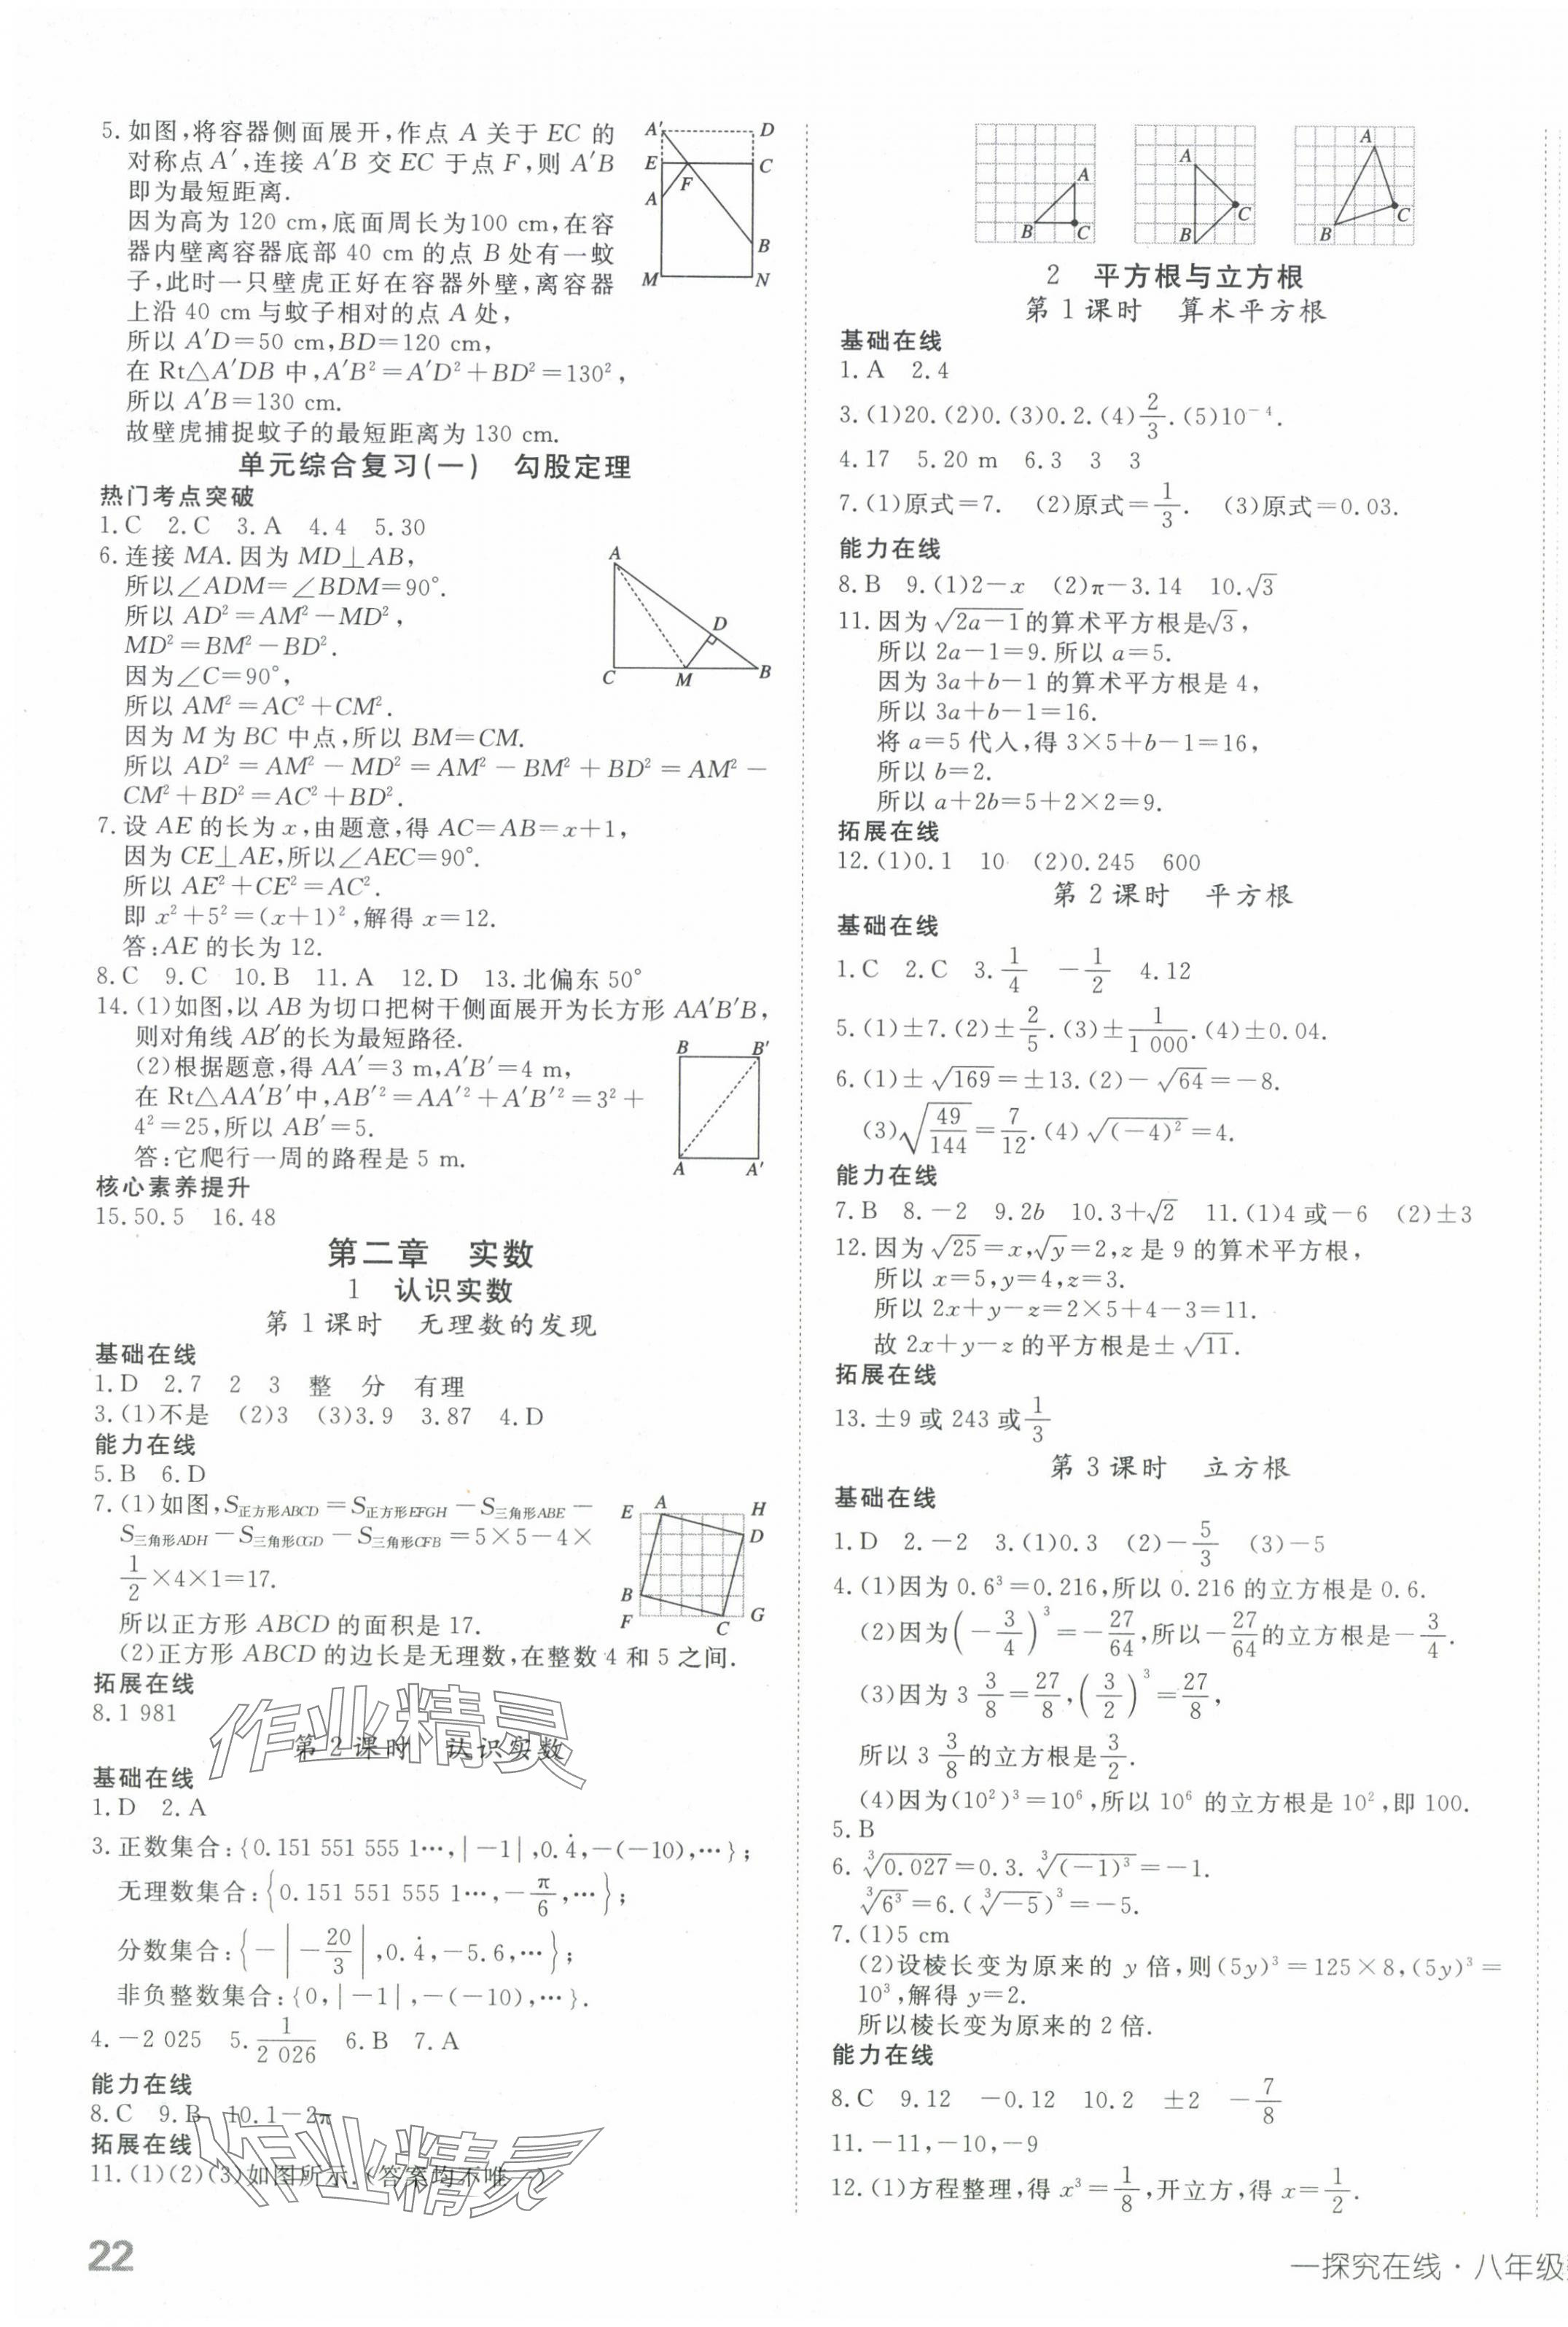 5. 如图,将容器侧面展开,作点 A 关于 EC 的
对称点 A′,连接 A′B 交 EC 于点 F,则 A′B
即为最短距离.
因为高为 120 cm,底面周长为100 cm,在容
器内壁离容器底部 40 cm 的点 B 处有一蚊
子,此时一只壁虎正好在容器外壁,离容器
上沿 40 cm 与蚊子相对的点 A 处,
所以 A′D=50 cm,BD=120 cm,
在 Rt△A′DB 中,A′B²=A′D²+BD²=130²,
所以 A′B=130 cm.
故壁虎捕捉蚊子的最短距离为 130 cm.
A′ D
E C
F
A
B
M N
单元综合复习(一) 勾股定理
热门考点突破
1.C 2.C 3.A 4.4 5.30
6. 连接 MA. 因为 MD⊥AB,
所以∠ADM=∠BDM=90°.
所以 AD²=AM²-MD²,
MD²=BM²-BD².
因为∠C=90°,
所以 AM²=AC²+CM².
因为 M 为 BC 中点,所以 BM=CM.
所以 AD²=AM²-MD²=AM²-BM²+BD²=AM²-
CM²+BD²=AC²+BD².
A
D
C M B
7. 设 AE 的长为 x,由题意,得 AC=AB=x+1,
因为 CE⊥AE,所以∠AEC=90°.
所以 AE²+CE²=AC².
即 x²+5²=(x+1)²,解得 x=12.
答:AE 的长为 12.
8.C 9.C 10.B 11.A 12.D 13.北偏东 50°
14. (1)如图,以 AB 为切口把树干侧面展开为长方形 AA′B′B,
则对角线 AB′的长为最短路径.
(2)根据题意,得 AA′=3 m,A′B′=4 m,
在 Rt△AA′B′中,AB′²=AA′²+A′B′²=3²+
4²=25,所以 AB′=5.
答:它爬行一周的路程是 5 m.
B B′
A A′
核心素养提升
15.50.5 16.48
第二章 实数
1 认识实数
第 1 课时 无理数的发现
基础在线
1.D 2.7 2 3 整 分 有理
3.(1)不是 (2)3 (3)3.9 3.87 4.D
能力在线
5.B 6.D
7. (1)如图,S正方形ABCD=S正方形EFGH-S三角形ABE-
S三角形ADH-S三角形CGD-S三角形CFB=5×5-4×
1/2×4×1=17.
所以正方形 ABCD 的面积是 17.
(2)正方形 ABCD 的边长是无理数,在整数 4 和 5 之间.
E A H
D
B
F C G
拓展在线
8.1 981
作业精灵
第 2 课时 认识实数
基础在线
1.D 2.A
3. 正数集合:{0.151 551 555 1…,|-1|,0.4̇,-(-10),…};
无理数集合:{0.151 551 555 1…,-π/6,…};
分数集合:{-|-20/3|,0.4̇,-5.6,…};
非负整数集合:{0,|-1|,-(-10),…}.
4.-2 025 5.1/2 026 6.B 7.A
能力在线
8.C 9.B 10.1-2π
拓展在线
11.(1)(2)(3)如图所示.(答案均不唯一)
作业精灵
22
A B C
A B C
A B C
2 平方根与立方根
第 1 课时 算术平方根
基础在线
1.A 2.4
3.(1)20.(2)0.(3)0.2.(4)2/3.(5)10⁻⁴.
4.17 5.20 m 6.3 3 3
7.(1)原式=7. (2)原式=1/3. (3)原式=0.03.
能力在线
8.B 9.(1)2-x (2)π-3.14 10.√3
11. 因为√(2a-1)的算术平方根是√3,
所以 2a-1=9.所以 a=5.
因为 3a+b-1 的算术平方根是 4,
所以 3a+b-1=16.
将 a=5 代入,得 3×5+b-1=16,
所以 b=2.
所以 a+2b=5+2×2=9.
拓展在线
12.(1)0.1 10 (2)0.245 600
第 2 课时 平方根
基础在线
1.C 2.C 3.1/4 -1/2 4.12
5.(1)±7.(2)±2/5.(3)±1/1 000.(4)±0.04.
6.(1)±√169=±13.(2)-√64=-8.
(3)√(49/144)=7/12.(4)√((-4)²)=4.
能力在线
7.B 8.-2 9.2b 10.3+√2 11.(1)4 或-6 (2)±3
12. 因为√25=x,√y=2,z 是 9 的算术平方根,
所以 x=5,y=4,z=3.
所以 2x+y-z=2×5+4-3=11.
故 2x+y-z 的平方根是±√11.
拓展在线
13.±9 或 243 或1/3
第 3 课时 立方根
基础在线
1.D 2.-2 3.(1)0.3 (2)-5/3 (3)-5
4.(1)因为 0.6³=0.216,所以 0.216 的立方根是 0.6.
(2)因为(-3/4)³=-27/64,所以-27/64的立方根是-3/4.
(3)因为 3 3/8=27/8,(3/2)³=27/8,
所以 3 3/8的立方根是3/2.
(4)因为(10²)³=10⁶,所以 10⁶ 的立方根是 10²,即 100.
5.B
6. ∛0.027=0.3. ∛((-1)³)=-1.
∛(6³)=6.(∛-5)³=-5.
7.(1)5 cm
(2)设棱长变为原来的 y 倍,则(5y)³=125×8,(5y)³=
10³,解得 y=2.
所以棱长变为原来的 2 倍.
能力在线
8.C 9.12 -0.12 10.2 ±2 -7/8
11.-11,-10,-9
12.(1)方程整理,得 x³=1/8,开立方,得 x=1/2.
—探究在线·八年级